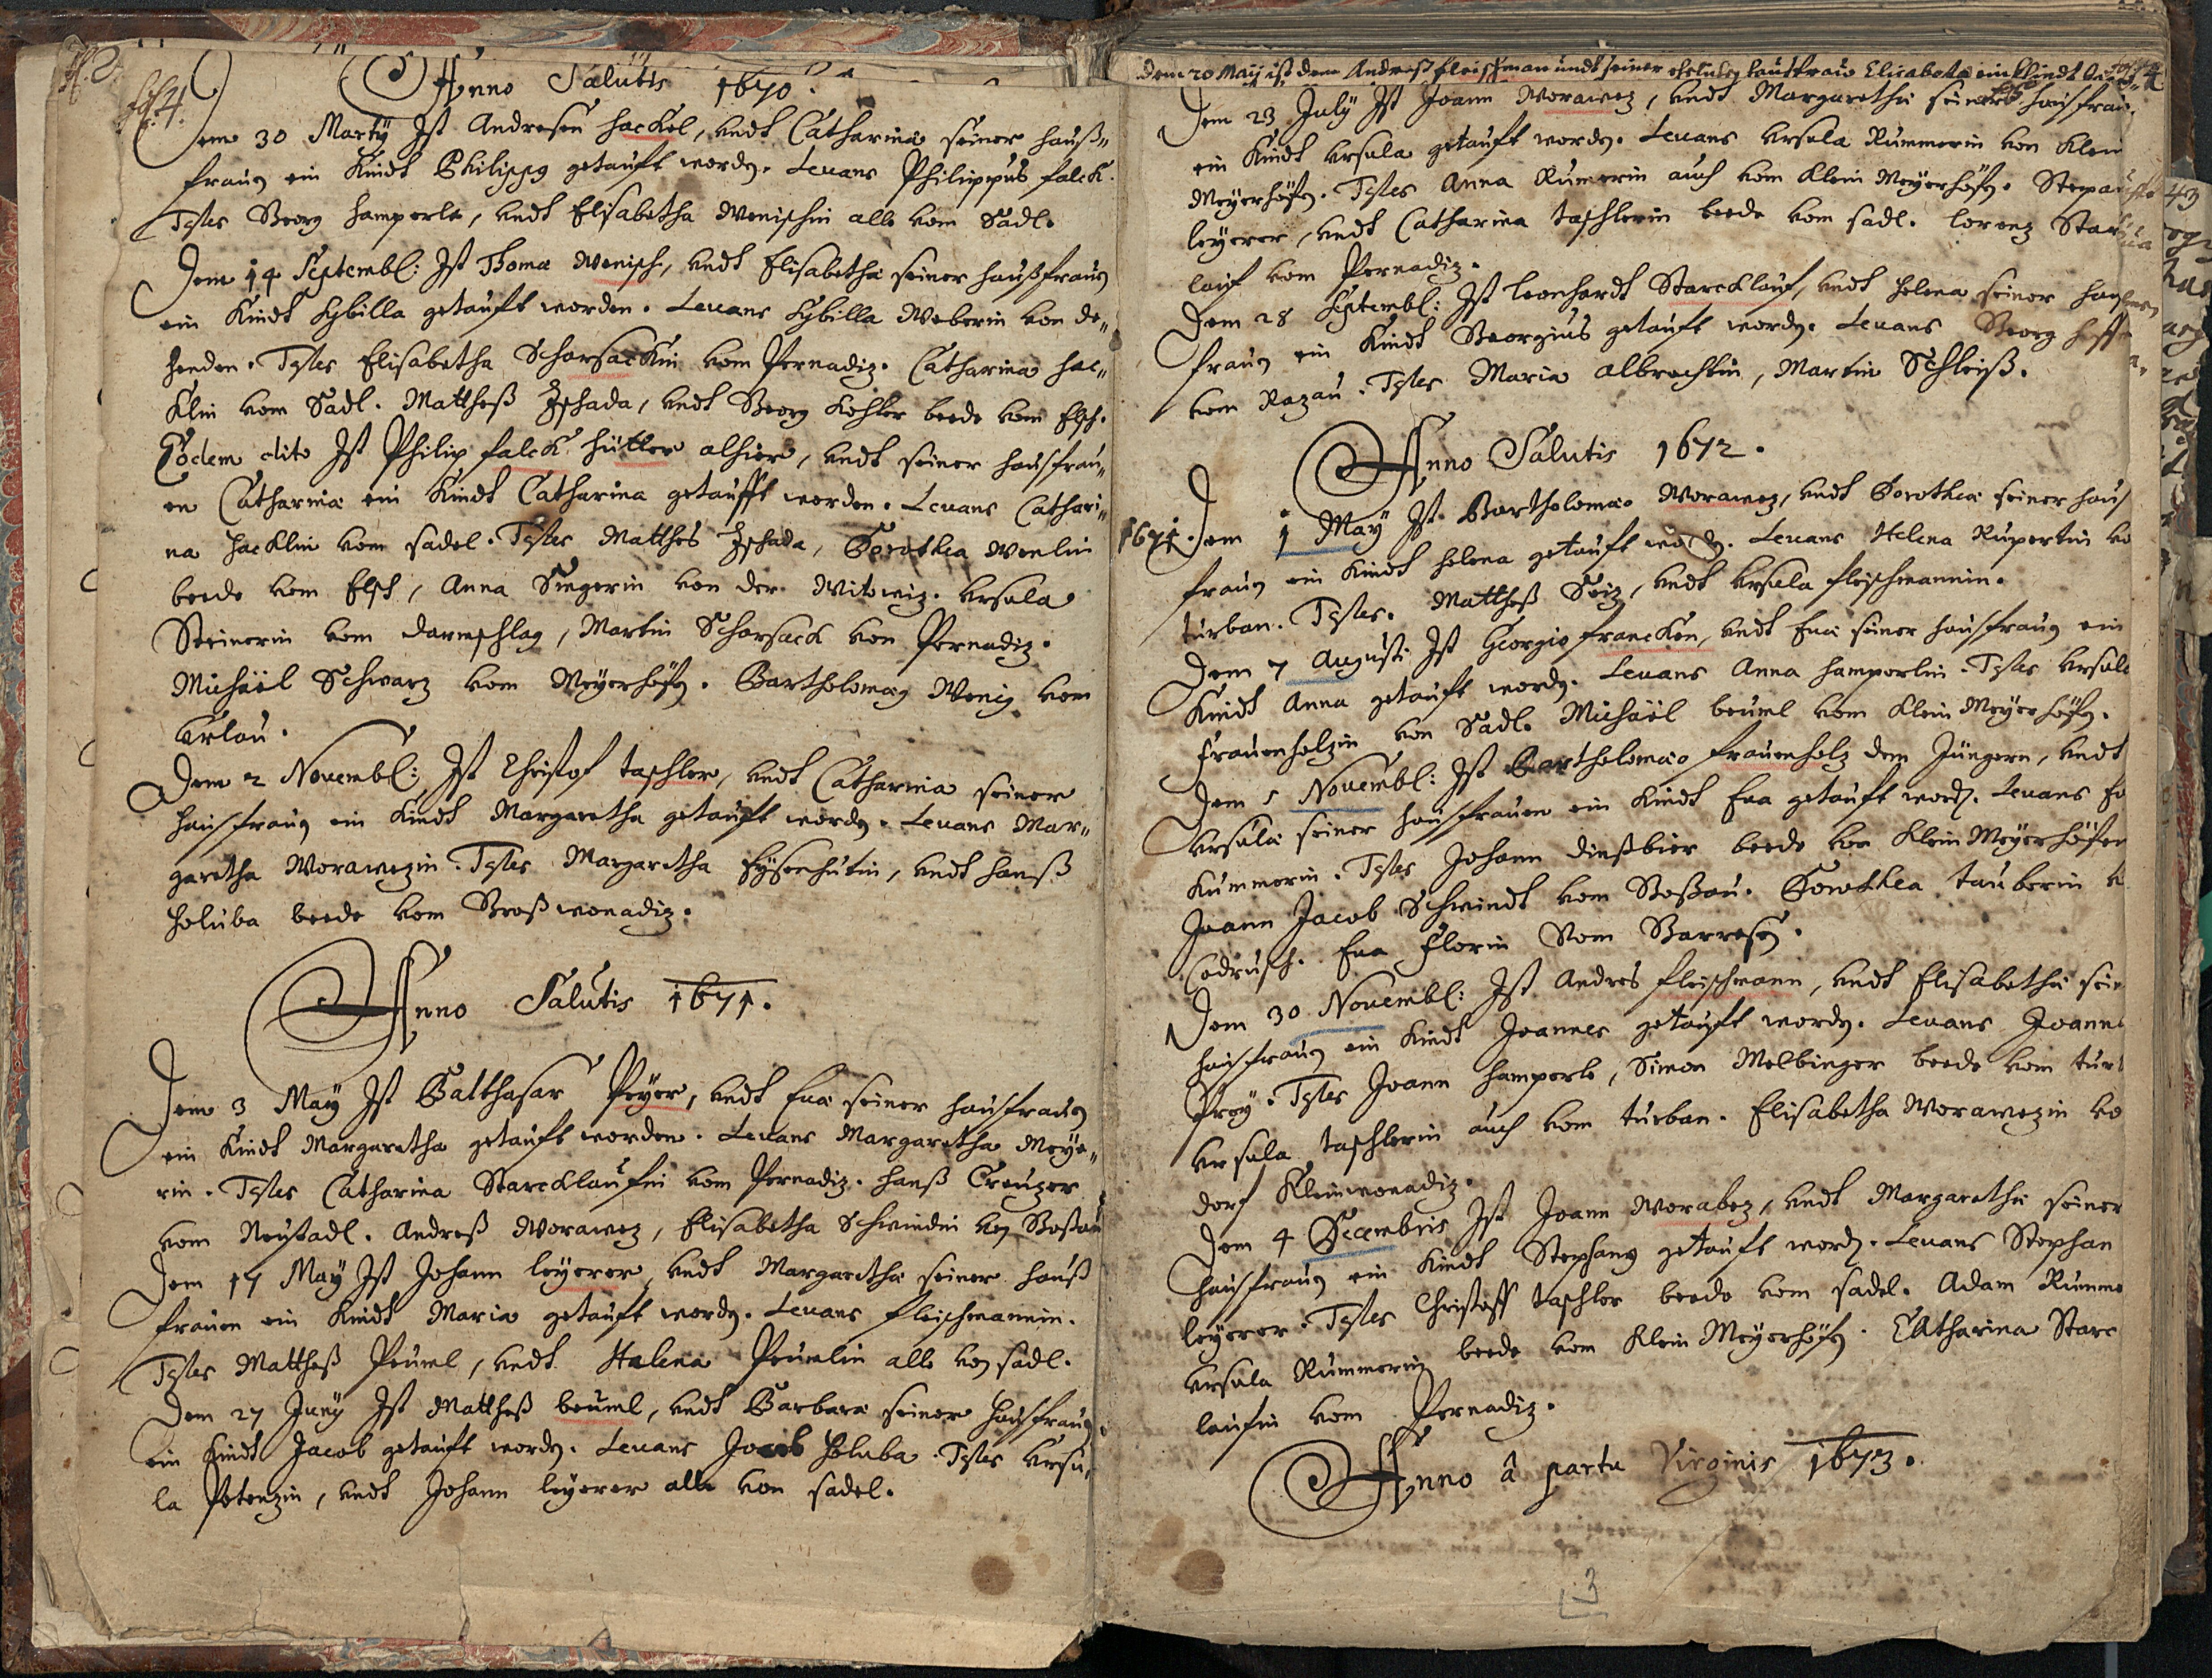 Anno Salutis 1670.
Fol. 4.
Dem 30 Martÿ Ist Andresen Hackel, vndt Catharina seiner hauß„
frauen ein Kindt Philippus getauft worden. Leuans Philippus falck.
Testes Georg Hamperle, vndt Elisabetha Wenischin alle vom Sadl.
Dem 14 Septembl: Ist Thoma Wenisch, vndt Elisabetha seiner haußfrauen
ein Kindt Sybilla getauft worden. Leuans Sybilla Weberin von de„
Testes Elisabetha Scharsackin vom Pernadiz. Catharina Hac„
klin vom Sadl. Matheß Zschada, vndt Georg Kohler beede vom Elsch.
Eodem dito Ist Philip falck Hütter alhier, vndt seiner hausfrau„
en Catharina ein Kindt Catharina getaufft worden. Leuans Cathari„
na Hacklin vom sadel. Testes Matthes Zschada, Dorothea Wenlin
beede vom Elsch, Anna Singerin von der Witowiz. Vrsula
Steinerin vom darmschlag, Martin Scharsack von Pernadiz.
Michäel Schwarz vom Meyerhöfen. Bartholomaeus Wenig vom
Erlau.
Dem 2 Novembl: Ist Christof taschler, vndt Catharina seiner
hausfrauen ein Kindt Margaretha getauft worden. Leuans Mar„
garetha Worawezin. Testes Margaretha Eysenhutin, vndt Hanß
Holuba beede vom Großwonadiz.
Anno Salutis 1671.
Dem 3 Maÿ Ist Balthasar Peyer, vndt Eua seiner hausfrauen
ein Kindt Margaretha getauft worden. Leuans Margaretha Meye„
rin. Testes Catharina Starcklaufin vom Pernadiz. Hanß Creuzer
vom Neustadl. Andreß Worawez, Elisabetha Schwindin von Goßau
Dem 17 Maÿ Ist Johann leyerer, vndt Margaretha seiner hauß
frauen ein Kindt Maria getauft worden. Leuans fleischmannin.
Testes Matheß Peuml, vndt Helena Peumlin alle von sadl.
Dem 27 Junÿ Ist Matheß beuml, vndt Barbara seiner hausfrauen
ein Kindt Jacob getauft worden. Leuans Jacob Holuba. Testes Vrsu„
la Petenzin, vndt Johann leyerer alle von sadel.
Dem 20 Maÿ ist dem Andreß fleischman undt seiner haußfraw Elisabeta ein Kindt
Dem 23 Julÿ Ist Joann Worawez, vndt Margaretha seiner hausfrau
ein Kindt Vrsula getauft worden. Leuans Vrsula Rummerin von Klein
Meyerhöfen. Testes Anna Rumerin auch vom Klein Meyerhöfen. Stepan
leyerer, vndt Catharina taschlerin beede vom sadl. Lorenz Starck
lauf vom Pernadiz.
Dem 28 Septembl: Ist Leonhardt Starcklauf, vndt Helena seiner haus
frauen ein Kindt Georgius getauft worden. Leuans Georg
vom Razau. Testes Maria Albrechtin, Martin Schleiß.
Anno Salutis 1672.
1671. Dem 1 Maÿ Ist Bartholomaeo Worawez, vndt Dorothea seiner haus
frauen ein Kindt Helena getauft worden. Leuans Helena Rupertin vo
turban. Testes. Mattheß Seiz, vndt Vrsula fleischmannin.
Dem 7 Augusti Ist Georgio francken, vndt Eua seiner hausfrauen ein
Kindt Anna getauft worden. Leuans Anna Hamperlin. Testes Vrsula
frauenholzin von Sadl. Michäel beuml vom Klein Meyerhöfen.
Dem 5 Novembl: Ist Bartholomaeo frauenholz dem Jüngern, vndt
Vrsula seiner hausfrauen ein Kindt Eua getauft worden. Leuans Eu
Kummerin. Testes Johann dinßbier beede von Klein Meyerhöfen
Joann Jacob Schwindt vom Goßau. Dorothea tauberin v
Codrusch. Eua Florin Vom
Dem 30 Novembl: Ist Andres fleischmann, vndt Elisabetha sein
hausfrauen ein Kindt Joannes getauft worden. Leuans Joanne
Frey. Testes Joann Hamperle, Simon Melbinger beede vom turb
Vrsula taschlerin auch vom turban. Elisabetha Worawezin vo
dorf Kleinwonadiz.
Dem 4 Decembris Ist Joann Worabez, vndt Margaretha seiner
hausfrauen ein Kindt Stephanus getauft worden. Leuans Stephan
leyerer. Testes Christoff taschler beede vom sadel. Adam Rumme
Vrsula Rummerin beede vom Klein Meyerhöfen. Catharina Starc
laufin vom Pernadiz.
Anno â partu Virginis 1673.
3